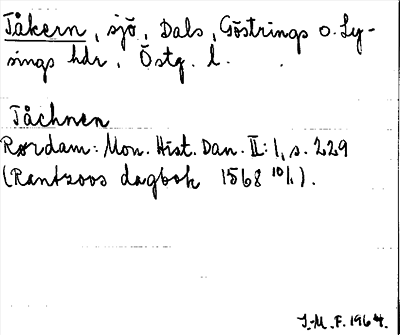 Tåkern, sjö, Dals, Göstrings o. Ly-
sings hdr, Östg. l.
Tåchnen
Rørdam: Mon. Hist. Dan. II: 1, s. 229
(Rantzovs dagbok 1568 10/1).
J. M. F. 1964.